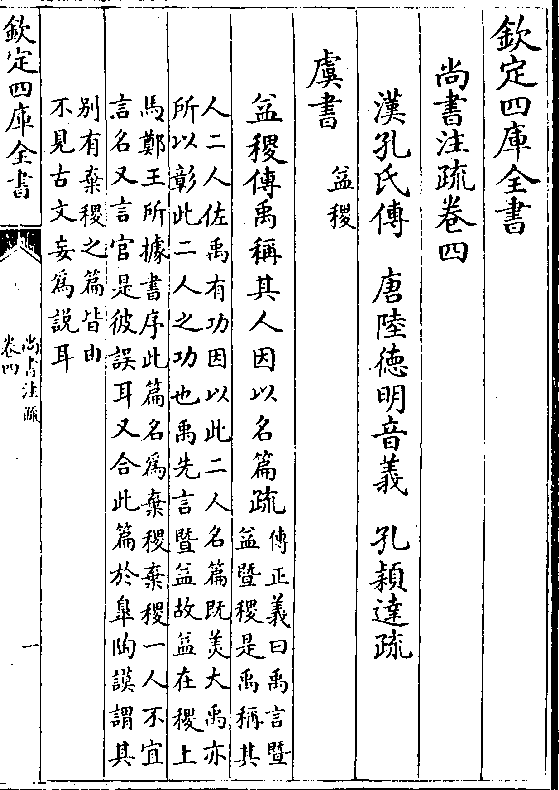 欽定四庫全書
尚書注疏卷四
漢孔氏傳 唐陸德明音義 孔穎達疏
虞書
益稷
益稷傳禹稱其人因以名篇疏
傳正義曰禹言曁
益曁稷是禹稱其
人二人佐禹有功因以此二人名篇既美大禹亦
所以彰此二人之功也禹先言曁益故益在稷上
馬鄭王所據書序此篇名為棄稷棄稷一人不宜
言名又言官是彼誤耳又合此篇於臯陶謨謂其
别有棄稷之篇皆由
不見古文妄為説耳
欽定四庫全書
尚書注疏
卷四
一